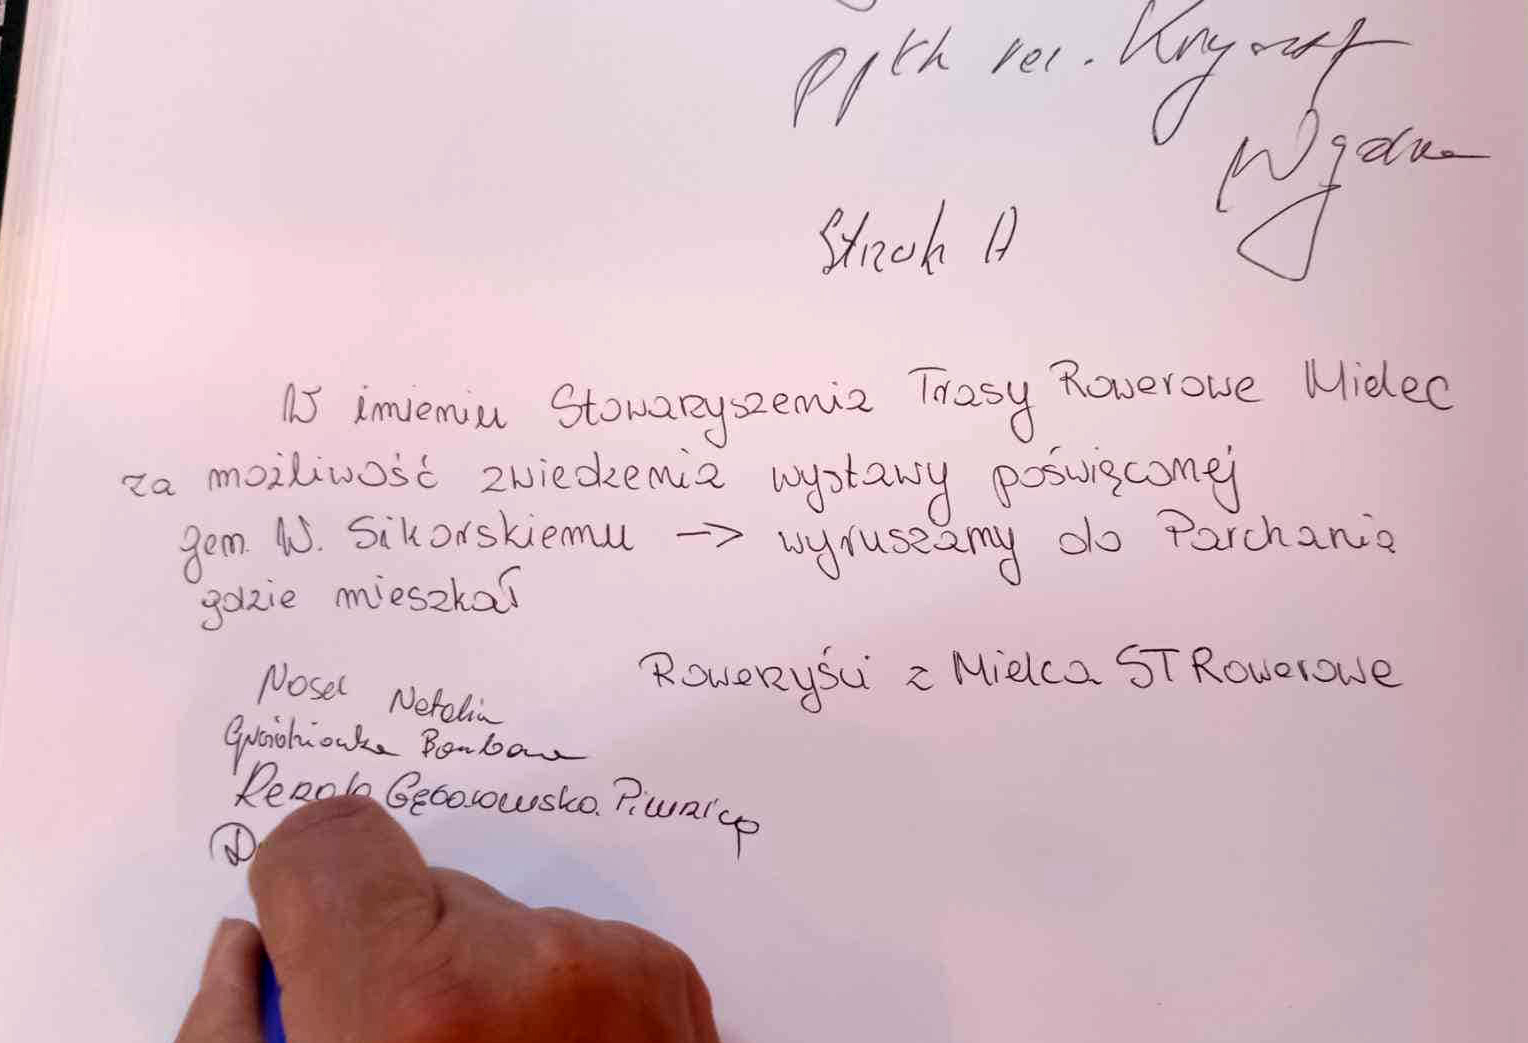 ppłk rez. Krzysztof
Strach A
W imieniu Stowarzyszenia Trasy Rowerowe Mielec
za możliwość zwiedzenia wystawy poświęconej
gen. W. Sikorskiemu -> wyruszamy do Parchania
gdzie mieszkał
Rowerzyści z Mielca STRowerowe
Nosel Natalia
Renata